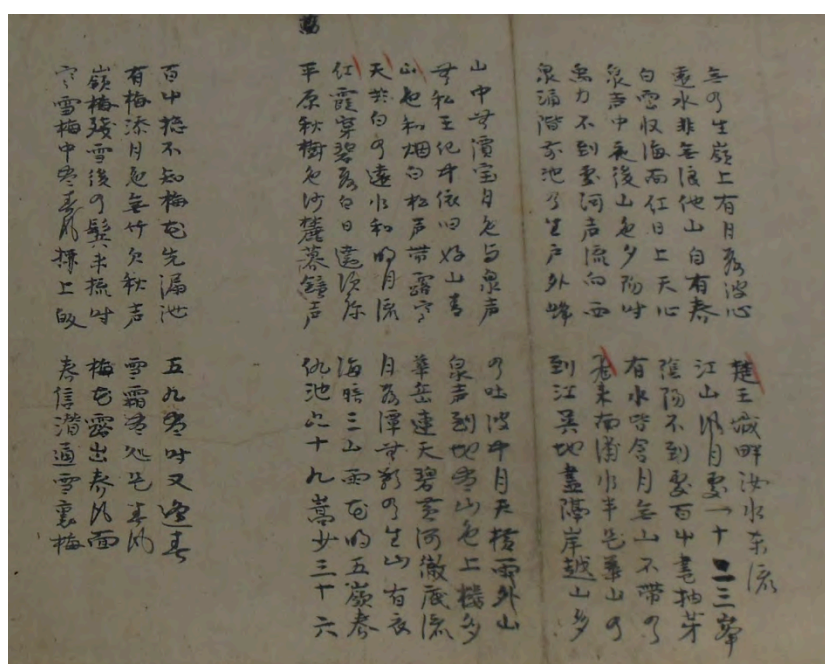 無雲生嶺上有月落波心
遠水非無浪他山自有春
白雲收海面紅日上天心
泉声中夜後山色夕陽時
禹力不到處河声流向西
泉涌階前池雲生戸外峰
楚王城畔汝水東流
江山風月處一十二三峯
陰陽不到處百中春抽芽
有水皆含月無山不帯雲
看来南浦水半是華山雲
到江吳地盡隔岸越山多
山中無濱宝月色与泉声
無私王化中依旧好山青
山色和烟白松声帯露寒
天共白雲遠水和明月流
紅霞穿碧落白日遶須弥
平原秋樹色沙麓暮鐘声
雲吐波中月天横雨外山
泉声到地尽山色上楼多
華岳連天碧黄河徹底流
月落潭無影雲生山有衣
海晴三山雨花明五嶺春
仇池六十九嵩少三十六
百中捻不知梅花先漏池
有梅添月色無竹欠秋声
嶺梅残雪後雲鬢半梳時
寒雪梅中尽春風柳上皈
五九尽時又逢春
雪霜尽処是春風
梅花露出春風面
春信潜通雪裏梅